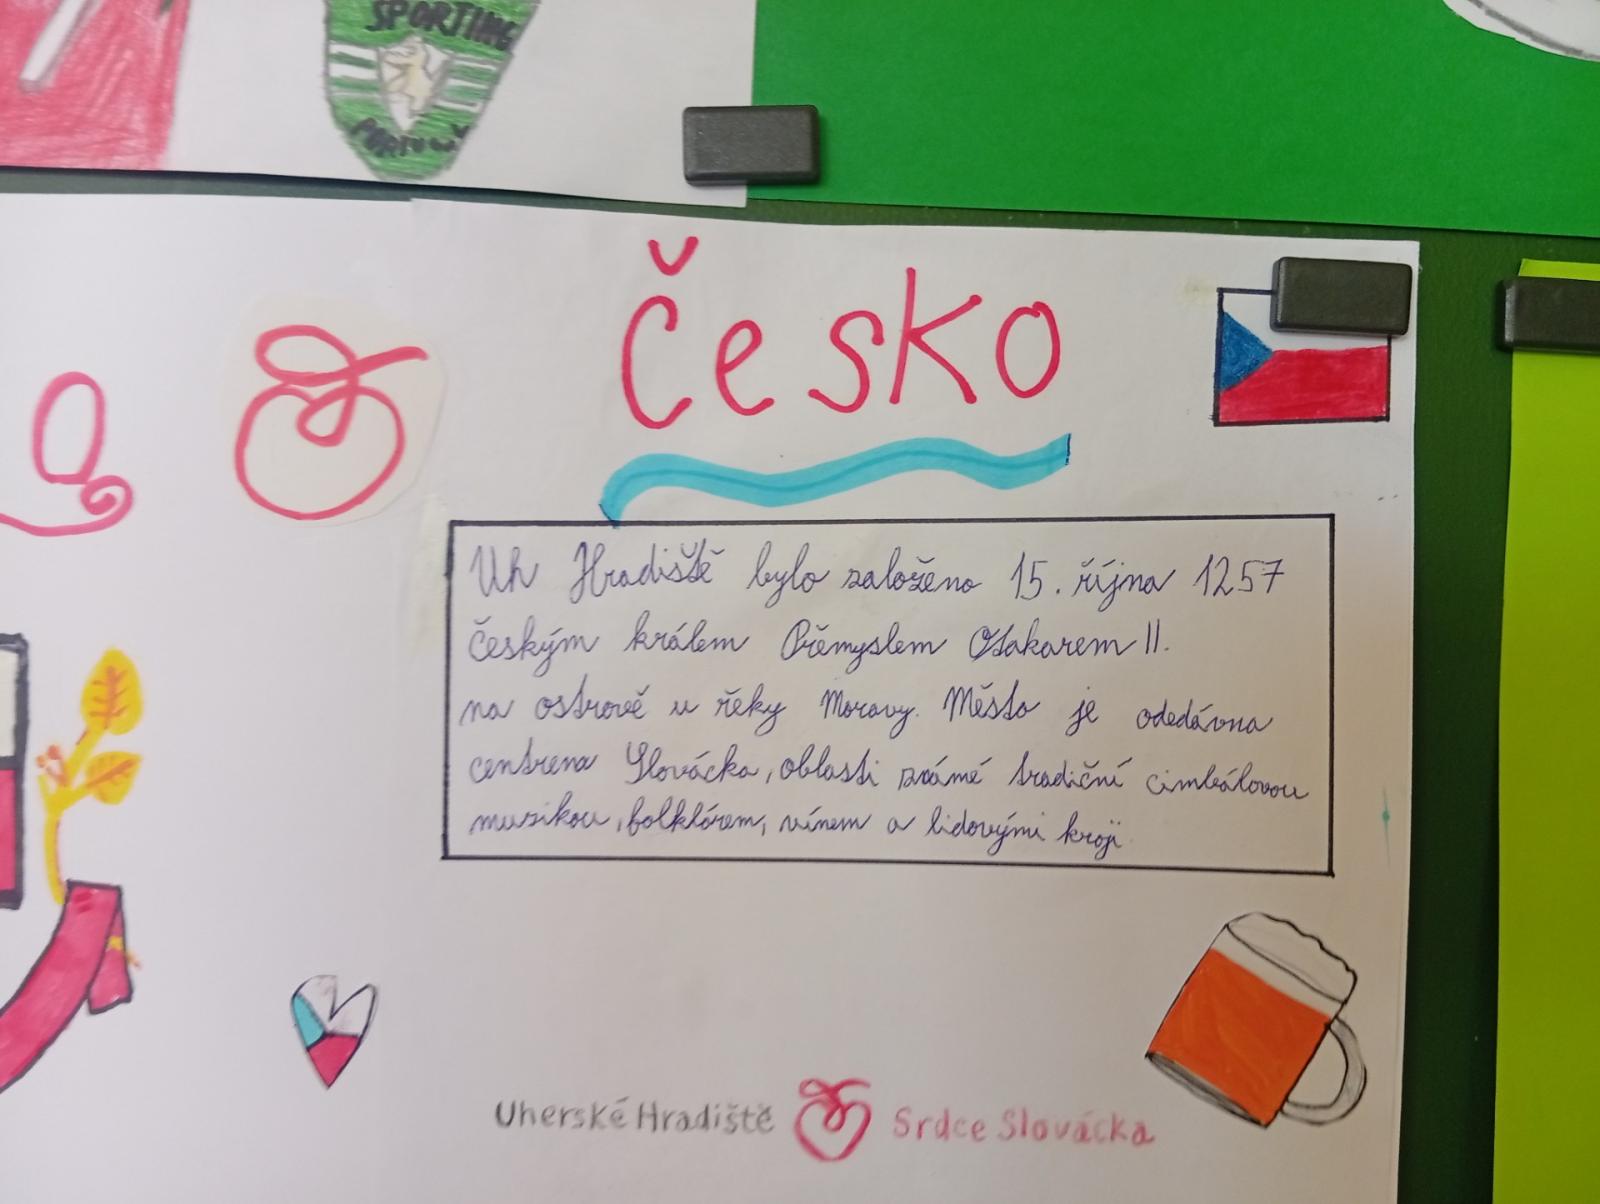 SPORTING
Česko
Uh Hradiště bylo založeno 15. října 1257
českým králem Přemyslem Otakarem II.
na ostrově u řeky Moravy. Město je odedávna
centrem Slovácka, oblasti známé tradiční cimbálovou
muzikou, folklórem, vínem a lidovými kroji
Uherské Hradiště Srdce Slovácka